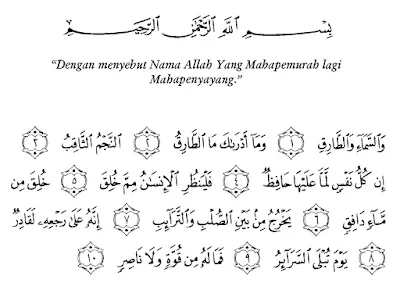 بِسْمِ اللَّهِ الرَّحْمَٰنِ الرَّحِيمِ
“Dengan menyebut Nama Allah Yang Mahapemurah lagi
Mahapenyayang.”
وَٱلسَّمَآءِ وَٱلطَّارِقِ ١ وَمَآ أَدْرَىٰكَ مَا ٱلطَّارِقُ ٢ ٱلنَّجْمُ ٱلثَّاقِبُ ٣
إِن كُلُّ نَفْسٍ لَّمَّا عَلَيْهَا حَافِظٌ ٤ فَلْيَنظُرِ ٱلْإِنسَٰنُ مِمَّ خُلِقَ ٥ خُلِقَ مِن
مَّآءٍ دَافِقٍ ٦ يَخْرُجُ مِنۢ بَيْنِ ٱلصُّلْبِ وَٱلتَّرَآئِبِ ٧ إِنَّهُۥ عَلَىٰ رَجْعِهِۦ لَقَادِرٌ
٨ يَوْمَ تُبْلَى ٱلسَّرَآئِرُ ٩ فَمَا لَهُۥ مِن قُوَّةٍ وَلَا نَاصِرٍ ١٠